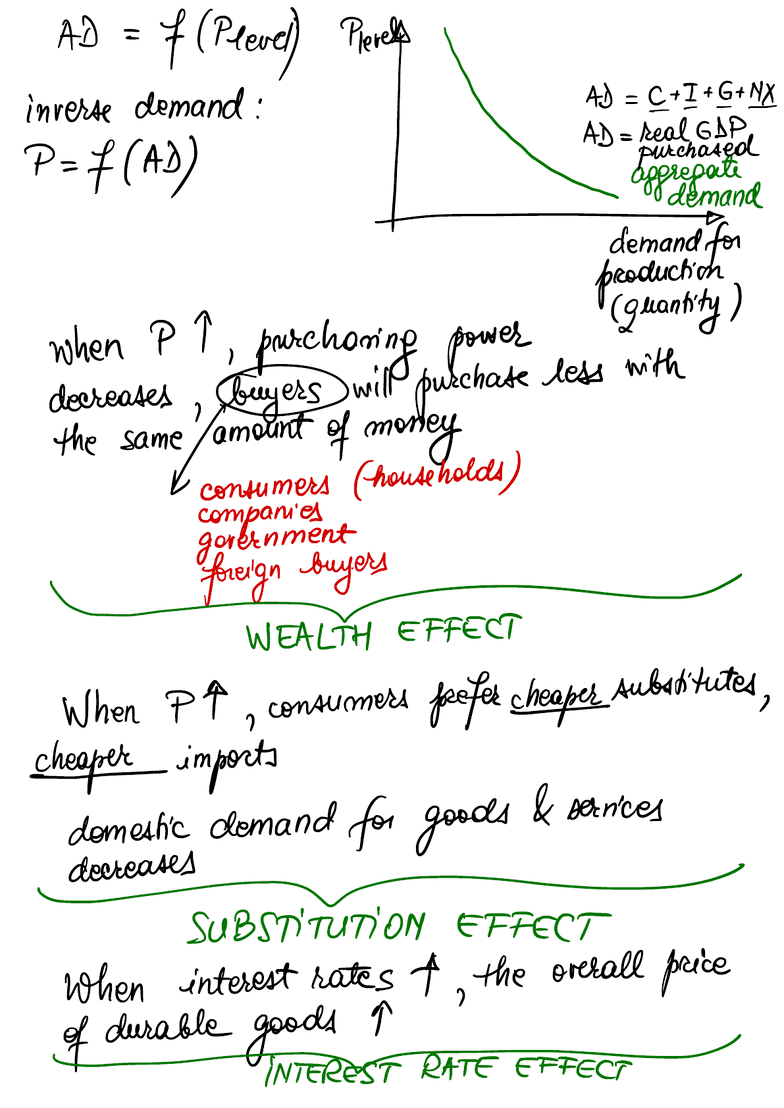 AD = f(Plevel)
inverse demand:
P = f(AD)
Plevels
AD = C+I+G+NX
AD = real GDP
purchased
aggregate
demand
demand for
production
(quantity)
When P ↑, purchasing power
decreases, buyers will purchase less with
the same amount of money
consumers (households)
companies
government
foreign buyers
WEALTH EFFECT
When P↑, consumers prefer cheaper substitutes,
cheaper imports
domestic demand for goods & services
decreases
SUBSTITUTION EFFECT
When interest rates ↑, the overall price
of durable goods ↑
INTEREST RATE EFFECT